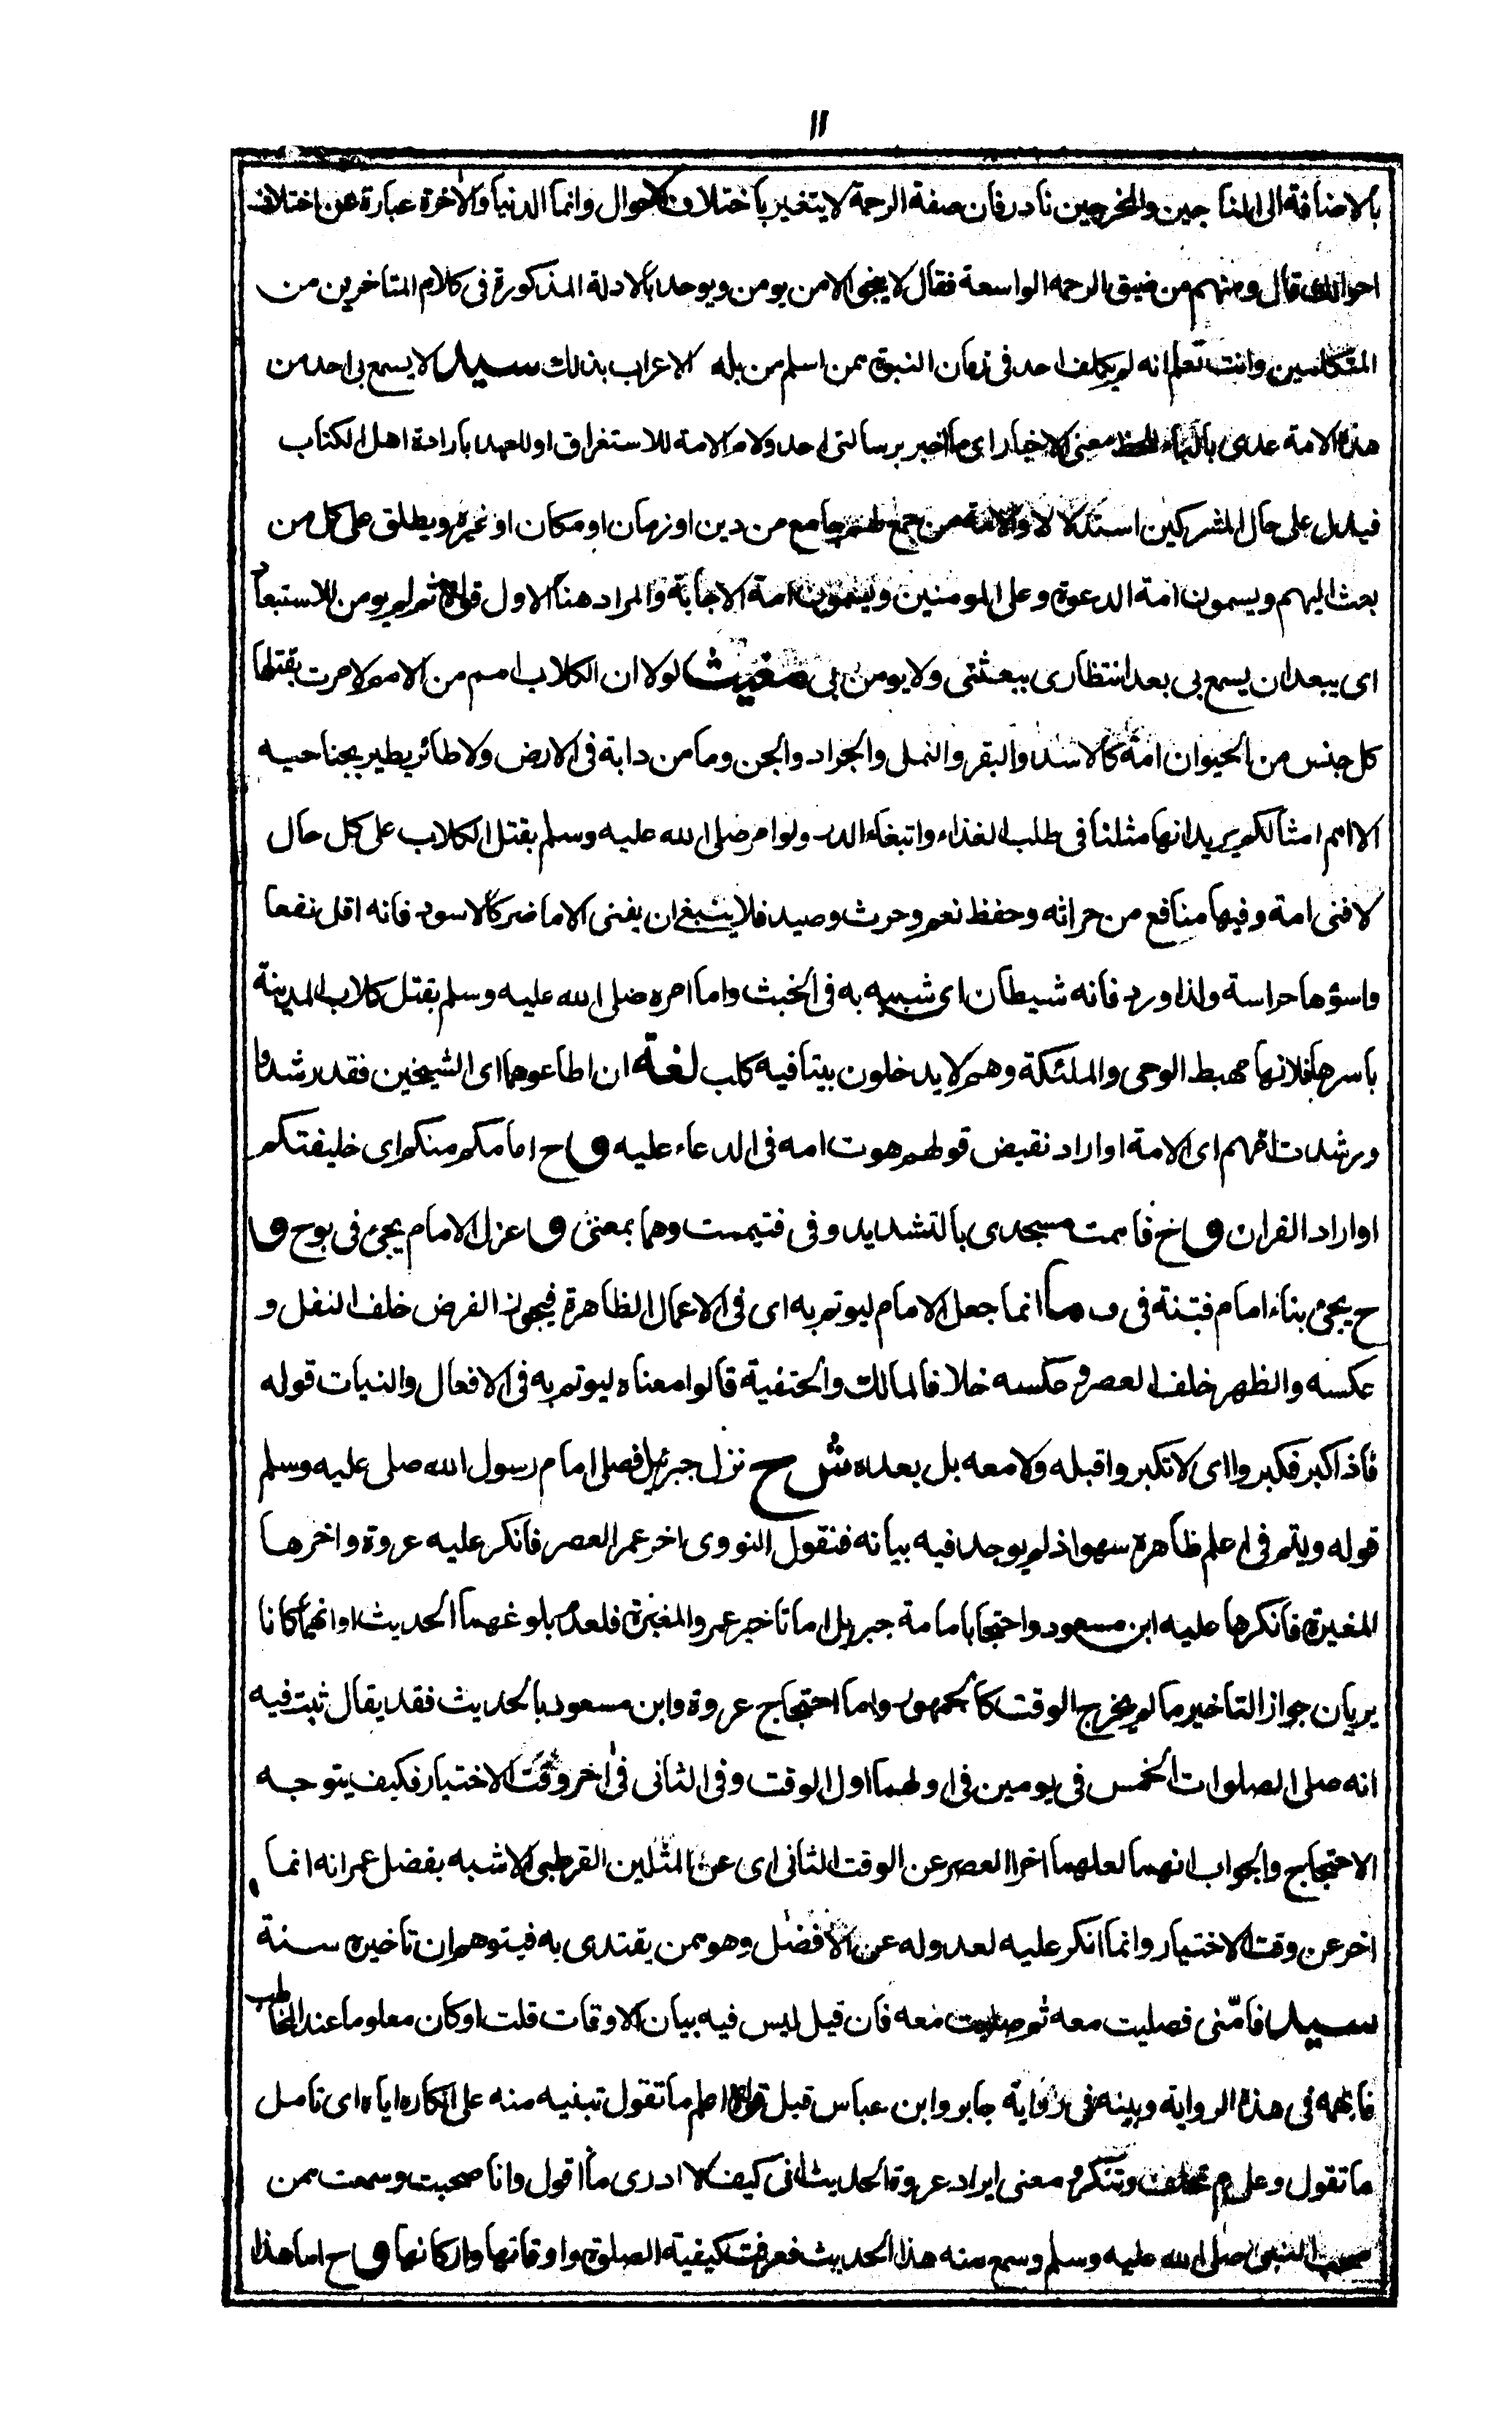 ١١
بالاضافة الى الناجين والمخرجين نادر فان صفة الرحمة لا يتغير باختلاف الاحوال وانما الدنيا والاخرة عبارة عن اختلاف
احوالك قال ومنهم من ضيق الرحمه الواسعة فقال لا ينجى الا من يومن ويوحد بالادلة المذكورة فى كلام المتاخرين من
المتكلمين وانت تعلم انه لم يكلف احد فى زمان النبوة ممن اسلم من بله الاعراب بذلك سيد لا يسمع بى احد من
هذه الامة عدى بالباء معنى الاخبار اى ما اخبر برسالتى احد ولام الامة للاستغراق او للعهد بارادة اهل الكتاب
فيدل على حال المشركين استدلالا والامة من جمع لهم جامع من دين او زمان او مكان او غيره ويطلق على كل من
بعث اليهم ويسمون امة الدعوة وعلى المومنين ويسمون امة الاجابة والمراد هنا الاول قوله ثم لم يومن للاستبعاد
اى يبعد ان يسمع بى بعد انتظارى ببعثتى ولا يومن بى مغيث لولا ان الكلاب امم من الامم لامرت بقتلها
كل جنس من الحيوان امة كالاسد والبقر والنمل والجراد والجن وما من دابة فى الارض ولا طائر يطير بجناحيه
الا امم امثالكم يريد انها مثلنا فى طلب الغذاء واتبغاء الدر ولو امر صلى الله عليه وسلم بقتل الكلاب على كل حال
لافنى امة وفيها منافع من حراثه وحفظ نعم وحرث وصيد فلا ينبغ ان يفنى الا ما ضر كالاسود فانه اقل نفعا
واسوءها حراسة ولذا ورد فانه شيطان اى شبيه به فى الخبث واما امره صلى الله عليه وسلم بقتل كلاب المدينة
باسرها فلانها مهبط الوحى والملئكة وهم لا يدخلون بيتا فيه كلب لغة ان اطاعوهما اى الشيخين فقد رشدوا
ورشدت امهم اى الامة او اراد نقيض قولهم هوت امه فى الدعاء عليه و ح امامكم منكم اى خليفتكم
او اراد القران و خ فاممت مسجدى بالتشديد وفى فتيممت وهما بمعنى و عزل الامام يجئ فى بوح و
ح يجئ بناء امام فتنة فى ب ما انما جعل الامام ليوتم به اى فى الاعمال الظاهرة فيجوز الفرض خلف النفل و
عكسه والظهر خلف العصر و عكسه خلافا لمالك والحنفية قالوا معناه ليوتم به فى الافعال والنيات قوله
فاذا كبر فكبروا اى لا تكبروا قبله ولا معه بل بعده ش ح نزل جبرئيل فصلى امام رسول الله صلى عليه وسلم
قوله ويتم فى اعلم ظاهره سهوا ذ لم يوجد فيه بيانه فنقول النووى اخر عمر العصر فانكر عليه عروة واخرها
المغيرة فانكرها عليه ابن مسعود واحتجا بامامة جبريل اما تاخير عمر والمغيرة فلعدم بلوغهما الحديث او انهما كانا
يريان جواز التاخير ما لم يخرج الوقت كالجمهور واما احتجاج عروة وابن مسعود بالحديث فقد يقال ثبت فيه
انه صلى الصلوات الخمس فى يومين فى اولهما اول الوقت وفى الثانى فى اخر وقت الاختيار فكيف يتوجه
الاحتجاج والجواب انهما لعلهما اخرا العصر عن الوقت الثانى اى عن المثلين القرطبى الاشبه بفضل عمر انه انما
اخر عن وقت الاختيار وانما انكر عليه لعدوله عن الافضل وهو ممن يقتدى به فيتوهم ان تاخيره سنة
سيد فامّنى فصليت معه ثم صليت معه فان قيل ليس فيه بيان الاوقات قلت او كان معلوما عند المخاطب
فابهمه فى هذه الرواية وبينه فى رواية جابر وابن عباس قبل قوله اعلم ما تقول تبنيه منه على انكاره اياه اى تامل
ما تقول وعلى م تحلف وتنكر و معنى ايراد عروة الحديث انى كيف لا ادرى ما اقول وانا صحبت وسمعت ممن
صحب النبى صلى الله عليه وسلم وسمع منه هذا الحديث فعرفت كيفية الصلوة واوقاتها واركانها و ح اما هذا